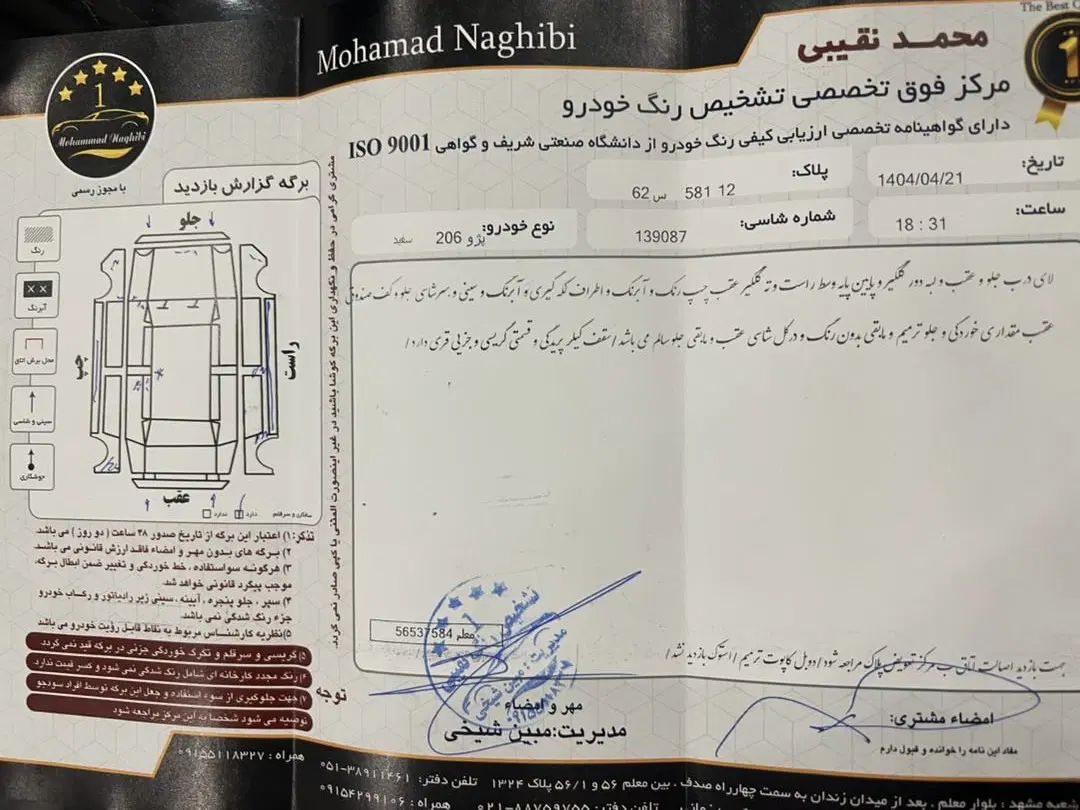 The Best
Mohamad Naghibi
محمــد نقیبی
1
مرکز فوق تخصصی تشخیص رنگ خودرو
دارای گواهینامه تخصصی ارزیابی کیفی رنگ خودرو از دانشگاه صنعتی شریف و گواهی ISO 9001
تاریخ: 1404/04/21
پلاک: 12 581 س 62
ساعت: 18 : 31
شماره شاسی: 139087
نوع خودرو: پژو 206 سفید
لای درب جلو و عقب و لبه دور گلگیر و پایین پایه وسط راست و ته گلگیر عقب چپ رنگ و آبرنگ و اطراف لکه گیری و آبرنگ و سینی و سرشاسی جلو و کف صندوق
عقب مقداری خوردگی و جلو ترمیم و مابقی بدون رنگ و درکل شاسی عقب و مابقی جلو سالم می باشد/سقف کیلر پریدگی و قسمتی گریسی و جزیی قری دارد/
جهت بازدید اصالت اتاق به مرکز تعویض پلاک مراجعه شود/دوبل کاپوت ترمیم/استوک بازدید نشد/
معلم 56537584
مهر و امضاء
مدیریت: مبین شیخی
امضاء مشتری:
مفاد این نامه را خوانده و قبول دارم
1
Mohammad Naghibi
با مجوز رسمی
برگه گزارش بازدید
جلو
راست
چپ
عقب
رنگ
آبرنگ
محل برش اتاق
سینی و شاسی
جوشکاری
دارد
ندارد
مشتری گرامی در حفظ و نگهداری این برگه کوشا باشید در غیر اینصورت المثنی یا کپی صادر نمی گردد.
تذکر: ۱) اعتبار این برگه از تاریخ صدور ۴۸ ساعت ( دو روز ) می باشد.
۲) برگه های بدون مهر و امضاء فاقد ارزش قانونی می باشد.
۳) هرگونه سواستفاده ، خط خوردگی و تغییر ضمن ابطال برگه،
موجب پیگرد قانونی خواهد شد.
۴) سپر ، جلو پنجره ، آیینه ، سینی زیر رادیاتور و رکاب خودرو
جزء رنگ شدگی نمی باشد.
۵) نظریه کارشناس مربوط به نقاط قابل رؤیت خودرو می باشد
۵) گریسی و سرقلم و تگرگ خوردگی جزئی در برگه قید نمی گردد.
۶) رنگ مجدد کارخانه ای شامل رنگ شدگی نمی شود و کسر قیمت ندارد.
۷) جهت جلوگیری از سوء استفاده و جعل این برگه توسط افراد سودجو
توصیه می شود شخصا به این مرکز مراجعه شود
توجه
همراه : ۰۹۱۵۵۱۱۸۳۲۷
شعبه مشهد : بلوار معلم ، بعد از میدان زندان به سمت چهارراه صدف ، بین معلم ۵۶ و ۵۶/۱ پلاک ۱۳۲۴ تلفن دفتر: ۳۸۹۱۱۴۶۱-۰۵۱
تلفن دفتر: ۸۸۷۵۹۷۵۵-۰۲۱ همراه : ۰۹۱۵۴۲۹۹۱۰۶